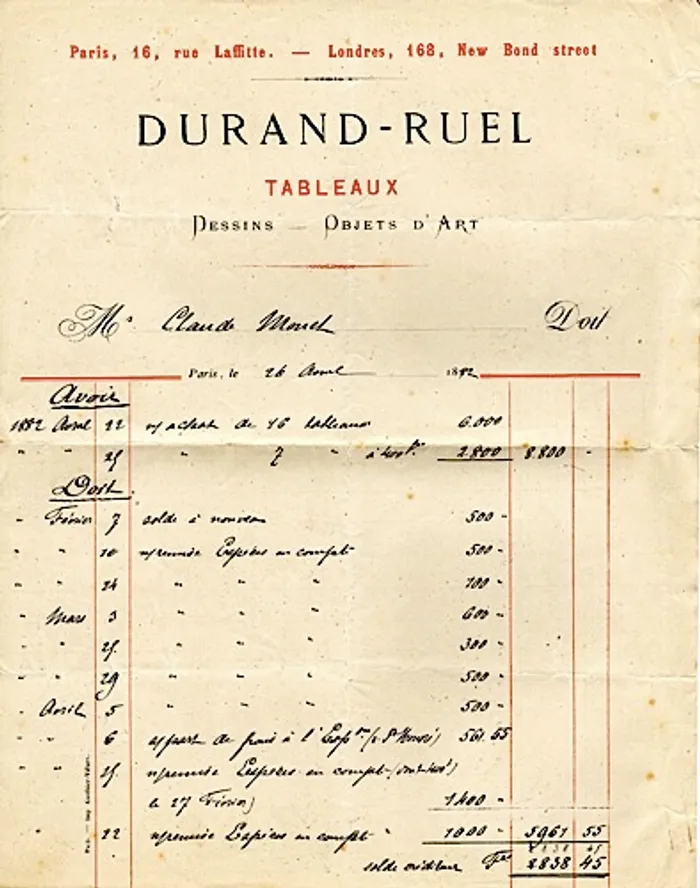 Paris, 16, rue Laffitte. — Londres, 168, New Bond street
DURAND-RUEL
TABLEAUX
DESSINS — OBJETS D'ART
Mr Claude Monet Doit
Paris, le 26 Avril 1882
Avoir
1882 Avril 22 n/ achat de 16 tableaux 6.000
" " 25 " 7 " à 400 f. 2.800 8.800 -
Doit
- Février 7 solde à nouveau 500 -
" " 10 n/ remise Espèces en compte 500 -
" " 24 " " " 100 -
- Mars 3 " " " 600 -
" " 25 " " " 300 -
" " 29 " " " 500 -
- Avril 5 " " " 500 -
" " 6 s/ part de frais à l'Expon (r. St Honoré) 561.55
" " 25 n/ remise Espèces en compte
le 27 Février) 1400 -
" 22 n/ remise Espèces en compte " 1000 - 5961 55
solde créditeur Frs 2838 45